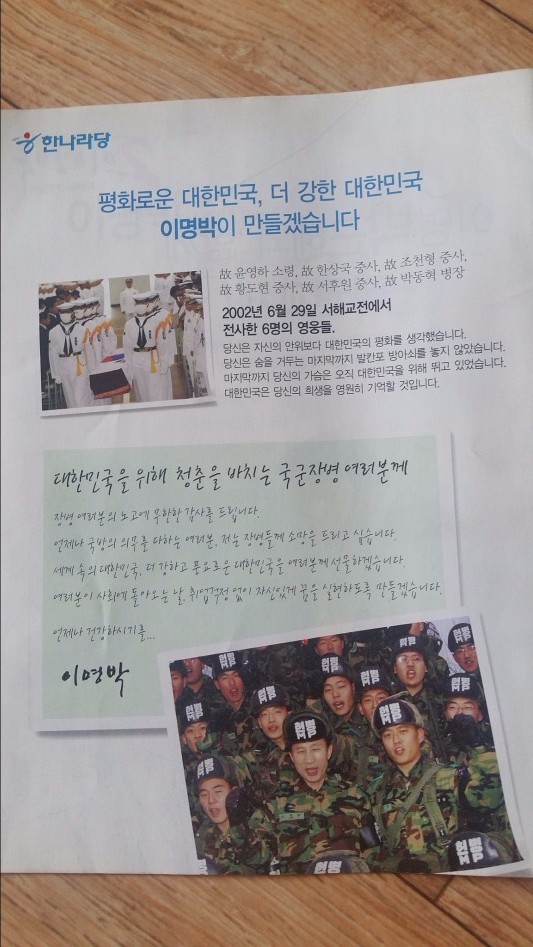 한나라당
평화로운 대한민국, 더 강한 대한민국
이명박이 만들겠습니다
故 윤영하 소령, 故 한상국 중사, 故 조천형 중사,
故 황도현 중사, 故 서후원 중사, 故 박동혁 병장
2002년 6월 29일 서해교전에서
전사한 6명의 영웅들.
당신은 자신의 안위보다 대한민국의 평화를 생각했습니다.
당신은 숨을 거두는 마지막까지 발칸포 방아쇠를 놓지 않았습니다.
마지막까지 당신의 가슴은 오직 대한민국을 위해 뛰고 있었습니다.
대한민국은 당신의 희생을 영원히 기억할 것입니다.
대한민국을 위해 청춘을 바치는 국군장병 여러분께
장병 여러분의 노고에 무한한 감사를 드립니다.
언제나 국방의 의무를 다하는 여러분, 저는 장병들께 소망을 드리고 싶습니다.
세계 속의 대한민국, 더 강하고 풍요로운 대한민국을 여러분께 선물하겠습니다.
여러분이 사회에 돌아오는 날, 취업걱정 없이 자신있게 꿈을 실현하도록 만들겠습니다.
언제나 건강하시기를...
이명박
헌병
MP